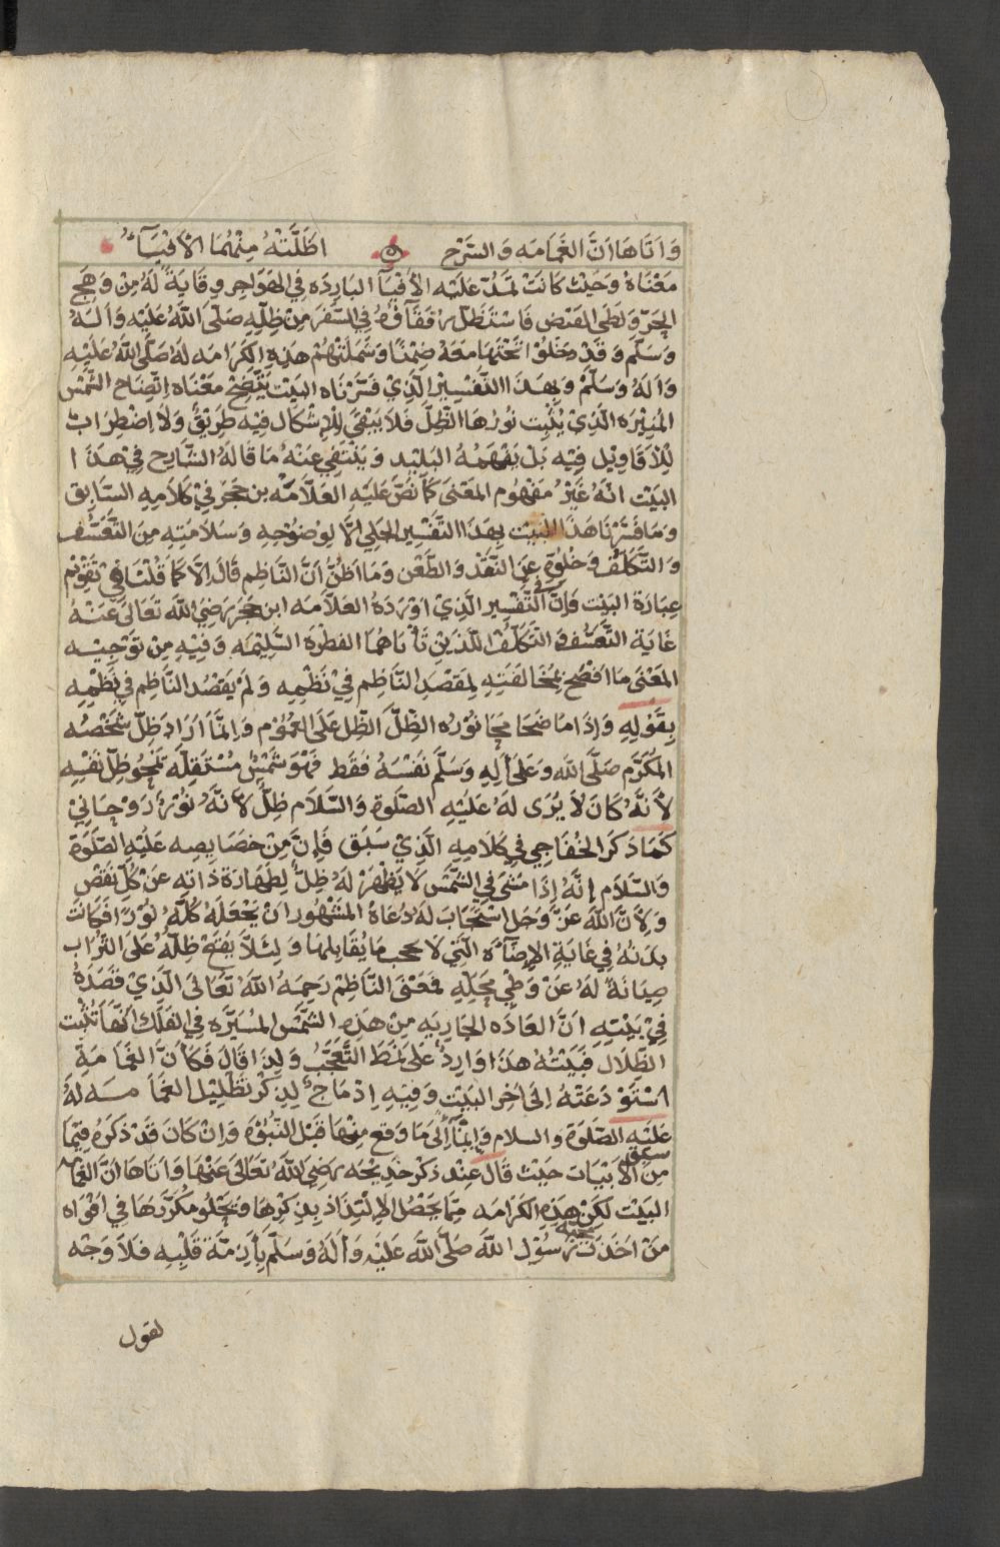 وَاَتَاهَا اَنَّ الغَمَامَه وَالسَّرْح ه اَظَلَّتْهُ مِنْهُمَا الأَفْيَآءُ
مَعْنَاهُ وَحَيْث كَانَتْ تمَدّ عَلَيْه الأَفْيَآ البَارِدَه فِي الهَوَاجِر وِقَايَةً لَهُ مِنْ وَهَجِ
الحَرّ وَلَظَى القَيْض فَاسْتَظَلَّ رفقَآؤُهُ فِي السَّفَرَ مِنْ ظِلِّهِ صَلَّى اَللهُ عَلَيْه وَاَلهُ
وَسَلَّم وَقَدْ دَخَلُوْا تَحْتَهَا مَعَهُ ضِمْنًا وَشَمَلَتْهُمْ هَذِهِ الكَرَامَه لَهُ صَلَّى اللهُ عَلَيْهِ
وَاَلهُ وَسَلَّمْ وَبِهَذَا التَّفْسِيْرِ الَّذِيْ فَسَّرْنَاه البَيْت يَتَّضِحُ مَعْنَاه اِتّضَاح الشَّمْس
المُنِيْرَه الَّذِيْ يُثْبِت نُوْرُهَا الظِّلّ فَلاَ يَبْقَى لِلْإِشْكَال فِيْه طَرِيْقٌ وَلاَ اِضْطِرَابٌ
لِلْأَقَاوِيْل فِيْه بَلْ يَفْهَمْهُ البَلِيْد وَيَنْتَفِي عَنْهُ مَا قَالَهُ الشَّارِح فِيْ هَذَا
البَيْت اَنَّهُ غَيْرُ مَفْهُوم المَعْنَى كَمَا نَصَّ عَلَيْهِ العَلاَّمَه بن حَجَر فِيْ كَلاَمِهِ السَّابِق
وَمَا فَسَّرْنَا هَذَا البَيْت بِهَذَا التَّفْسِيْرِ الجَلِي اِلَّا لِوُضُوْحِهِ وَسَلاَمَتِهِ مِنَ التَّعَسُّف
وَالتَّكَلُّف وَخُلُوِّهِ عَنِ النَّقْدْ وَالطَّعْن وَمَا اَظُنّ اَنَّ النَّاظِم قَالَ اِلَّا كَمَا قُلْنَا فِيْ تَقْوِيْم
عِبَارَة البَيْت وَاِنَّ فى التَّفْسِيْر الَّذِيْ اَوْرَدَهُ العَلاَّمَه ابن حَجَر رَضِيَ اللَّه تَعَالَى عَنْهُ
غَايَة التَّعَسُّف وَالتَّكَلُّف اللَّذَيْنِ تَأْبَاهُمَا الفِطْرَة السَّلِيْمَه وَفِيْهِ مِنْ تَوْجِيْه
المَعْنَى مَا اَفْصَحَ بِمُخَالَفَتِهِ لِمَقْصَدِ النَّاظِم فِيْ نَظْمِهِ وَلَمْ يَقْصُدِ النَّاظِم فِي نَظْمِهِ
بِقَوْلِهِ وَاِذَا مَا ضَحَا مَحَا نُوْرُه الظِّلَّ الظِّل عَلَى العُمُوْم وَاِنَّمَا اَرَادَ ظِلّ شَخْصُه
المُكَرَّم صَلَّى اللَّه وَعَلَى اَلِهِ وَسَلَّم نَفْسَهُ فَقَط فَهْوَ شَمْسٌ مُسْتَقِلّه تَمْحُو ظِلّ نَفْسِهِ
لأَنَّهُ كَانَ لاَ يُرَى لَهُ عَلَيْهِ الصَّلَوة وَالسَّلاَم ظِلٌّ لأَنَّهُ نُوْرٌ رَوْحَانِيْ
كَمَا ذَكَرَ الخُفَاجِي فِيْ كَلاَمِهِ الَّذِيْ سَبَق فَاِنَّ مِنْ خصَايِصِه عَلَيْهِ الصَّلَوة
وَالسَّلاَم اِنَّهُ اِذَا مَشَى فِي الشَّمْس لاَ يَظْهَرْ لَهُ ظِلٌّ لِطَهَارَة ذَاتِهِ عَنْ كُلّ نَقْص
وَلأَنَّ اللهَ عَزَّ وَجَل اِسْتَجَابَ لَهُ دُعَاهُ المَشْهُور اَنْ يَجْعَلَهُ كُلَّهُ نُوْرًا فَكَانَتَ
بَدَنهُ فِي غَايَةِ الإِضَآءَه الَّتِي لاَ تحجب مَا يُقَابِلهَا وَلِئَلاَّ يَقَع ظِلّه عَلَى التُّرَاب
صِيَانَةً لَهُ عَنْ وَطْي مَحَلِّهِ فَمَعْنَى النَّاظِمْ رَحِمَهُ اللهُ تَعَالَى الَّذِيْ قَصَدَهُ
فِيْ بَيْتِهِ اَنَّ العَادَه الجَارِيَه مِنْ هَذِهِ الشَّمْس المُسَيَّرَه فِي الفَلَك اَنَّهَا تُثْبِت
الظِّلاَل فَبَيْتُهُ هَذَا وَارِدٌ عَلَى نَمَطِ التَّعَجُّبْ وَلِذَا قَالَ فَكَأَنَّ الغَمَامَةَ
اسْتَوْدَعَتْهُ اِلَى اَخِرِ البَيْت وَفِيْهِ اِدْمَاجٌ لِذِكْرِ تَظْلِيْل الغَمَامَه لَهُ
عَلَيْهِ الصَّلَوة وَالسلام وَاِيْمَآ اِلَى مَا وَقَع مِنْهَا قَبْلَ النُّبُوَّة وَاِنْ كَانَ قَدْ ذَكَرَهُ فِيْمَا
سبق
مِنَ الأَبْيَات حَيْث قَال عِنْد ذِكْر خَدِيْجَه رَضِيَ اللَّهُ تَعَالَى عَنْهَا وَاَتَاهَا اَنَّ الغَمَامه
البَيْت لَكِنْ هَذِهِ الكَرَامَه مِمَّا يَحْصُل الإِلْتِذَاذ بِذِكْرِهَا وَيَحْلُو مُكَرَّرهَا فِي اَفْوَاه
مَنْ اَخَذَتْ محبّة رَسُوْل اللَّه صَلَّى اللَّهُ عَلَيْه وَاَلهُ وَسَلَّم بِأَزِمَّة قَلْبِهِ فَلاَ وَجْه
لقول